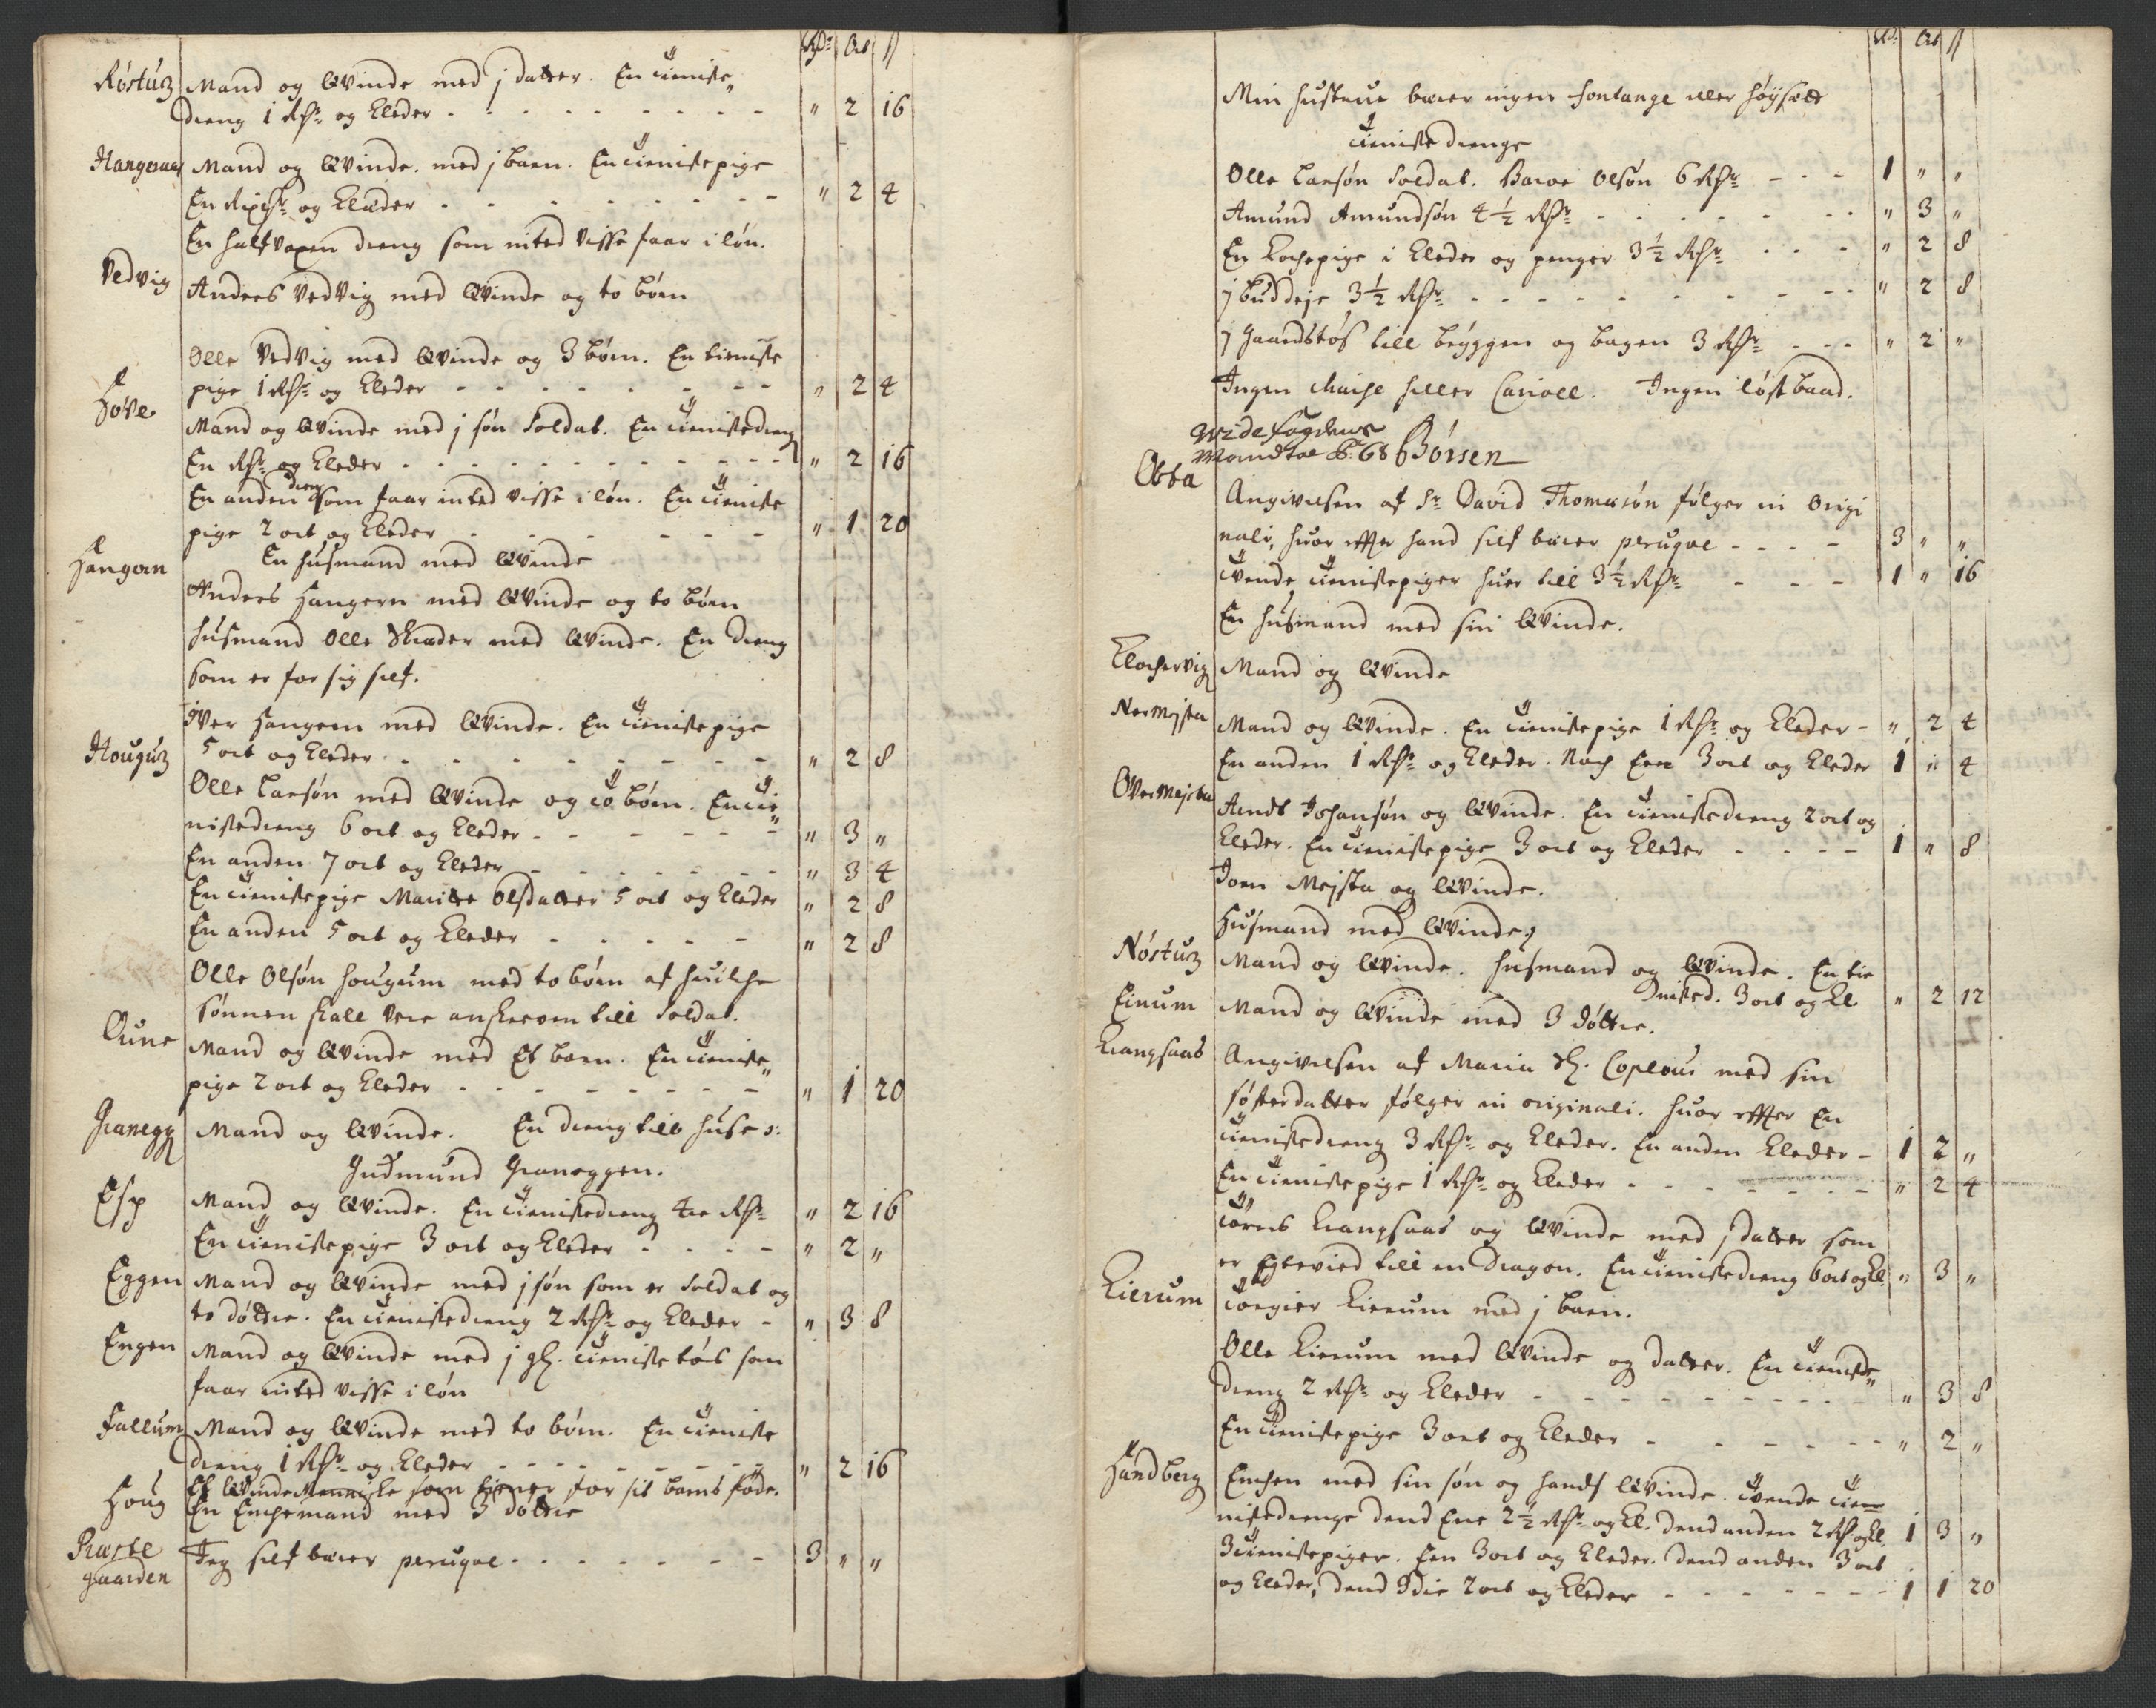 Rdr Ort ß
Røstum Mand og Qvinde med j datter. En tieniste„
dreng 1 Rdr og Kleder - - - " 2 16
Hangeraas Mand og Qvinde. med j barn. En tienistepige
En Rixdr og Klæder - - - " 2 4
En halfvoxen dreng som inted visse faar i løn.
Vedvig Anders Vedvig med Qvinde og to børn
Olle Vedvig med Qvinde og 3 børn. En tieniste
pige 1 Rdr og Kleder - - - " 2 4
Hove Mand og Qvinde med j søn Soldat. En tienistedreng
En Rdr og Kleder - - - " 2 16
En anden dreng som faar inted visse i løn. En tieniste
pige 2 ort og Kleder - - - " 1 20
En husmand med Qvinde
Hangern Anders Hangern med Qvinde og to børn
Husmand Olle Skræder med Qvinde. En dreng
som er for sig self.
Iver Hangern med Qvinde. En tienistepige
5 ort og Kleder - - - " 2 8
Hougum Olle Larsøn med Qvinde og to børn. En tie„
nistedreng 6 ort og Kleder - - - " 3 "
En anden 7 ort og Kleder - - - " 3 4
En tienistepige Maritte Olsdatter 5 ort og Kleder " 2 8
En anden 5 ort og Kleder - - - " 2 8
Olle Olsøn Hougum med to børn af huilche
sønnen skall vere anskreven till Soldat.
Oune Mand og Qvinde med Et barn. En tieniste„
pige 2 ort og Kleder - - - " 1 20
Granegg Mand og Qvinde. En dreng till huse
Gudmund Graneggen.
Esp Mand og Qvinde. En tienistedreng tre Rdr " 2 16
En tienistepige 3 ort og Kleder - - - " 2 "
Eggen Mand og Qvinde med j søn som er Soldat og
to døttre. En tienistedreng 2 Rdr og Kleder - " 3 8
Engen Mand og Qvinde med j gl. tieniste tøs som
faar inted visse i løn
Fallum Mand og Qvinde med to børn. En tieniste
dreng 1 Rdr og Kleder - - - " 2 16
Et Qvinde Menniske som tiener for sit barns føde.
Houg En Enchemand med 3 døttre
Præste gaarden Jeg self bærer peruque - - - 3 " "

Rdr Ort ß
Min hustrue bærer ingen fontange eller høysett
tieniste drenge
Olle Larsøn Soldat. Baroe Olsøn 6 Rdr - - - 1 " "
Amund Amundsøn 4½ Rdr - - - " 3 "
En Kochepige i Kleder og penger 3½ Rdr - - - " 2 8
j buddeje 3½ Rdr - - - " 2 8
j gaardstøs till brygge og bagen 3 Rdr - - - " 2 "
Ingen chaise heller Cariole. Ingen løstbaad.
vide fogdens
Mandtal P: 68 Børsen
Obta Angivelsen af Sr David Thomæsøn følger in origi
nali, huor effter hand self bærer peruque - - - 3 " "
tvende tienistepiger huer till 3½ Rdr - - - 1 " 16
En husmand med sin Qvinde.
Klochervig Mand og Qvinde
Ner Mejsta Mand og Qvinde. En tienistepige 1 Rdr og Kleder - " 2 4
En anden 1 Rdr og Kleder. Noch Een 3 ort og Kleder 1 " 4
Over Mejsta Arndt Johansøn og Qvinde. En tienistedreng 2 ort og
Kleder. En tienistepige 3 ort og Kleder - - - 1 " 8
Joen Mejsta og Qvinde.
Husmand med Qvinde
Nøstum Mand og Qvinde. husmand og Qvinde. En tie
nisted. 3 ort og Kl " 2 12
Einum Mand og Qvinde med 3 døttre.
Krangsaas Angivelsen af Maria Sl. Coplous med sin
søsterdatter følger in originali. huor effter En
tienistedreng 3 Rdr og Kleder. En anden Kleder - 1 2 "
En tienistepige 1 Rdr og Kleder - - - " 2 4
Tøres Krangsaas og Qvinde med j datter som
er Egtevied till en Dragon. En tienistedreng 6 ort og Kl. " 3 "
Kierum Torgier Kierum med j barn.
Olle Kierum med Qvinde og datter. En tieniste„
dreng 2 Rdr og Kleder - - - " 3 8
En tienistepige 3 ort og Kleder - - - " 2 "
Handberg Enchen med sin søn og hands Qvinde. tvende tie
nistedrenge dend Ene 2½ Rdr og Kl. dend anden 2 Rdr og Kl. 1 3 "
3 tienistepiger. Een 3 ort og Kleder. dend anden 3 ort
og Kleder, dend 3die 2 ort og Kleder - - - 1 1 20